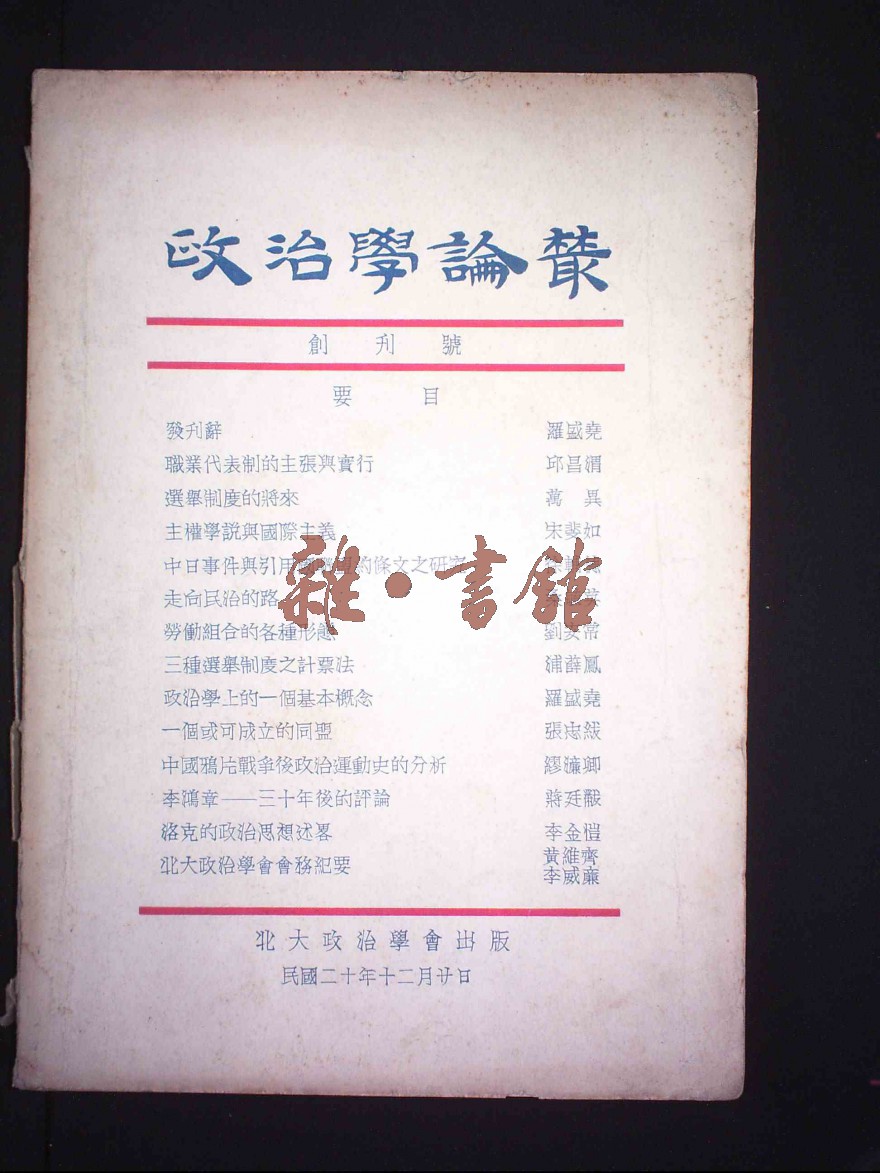 政治學論叢
創刊號
要目
發刊辭 羅盛堯
職業代表制的主張與實行 邱昌渭
選舉制度的將來 萬異
主權學説與國際主義 宋斐如
中日事件與引用 條文之研究
走向民治的路
勞働組合的各種形態 劉安常
三種選舉制度之計票法 浦薛鳳
政治學上的一個基本概念 羅盛堯
一個或可成立的同盟 張忠紱
中國鴉片戰爭後政治運動史的分析 繆濂卿
李鴻章——三十年後的評論 蔣廷黻
洛克的政治思想述畧 李金愷
北大政治學會會務紀要 黃維齊
李威廉
北大政治學會出版
民國二十年十二月廿日
雜·書館